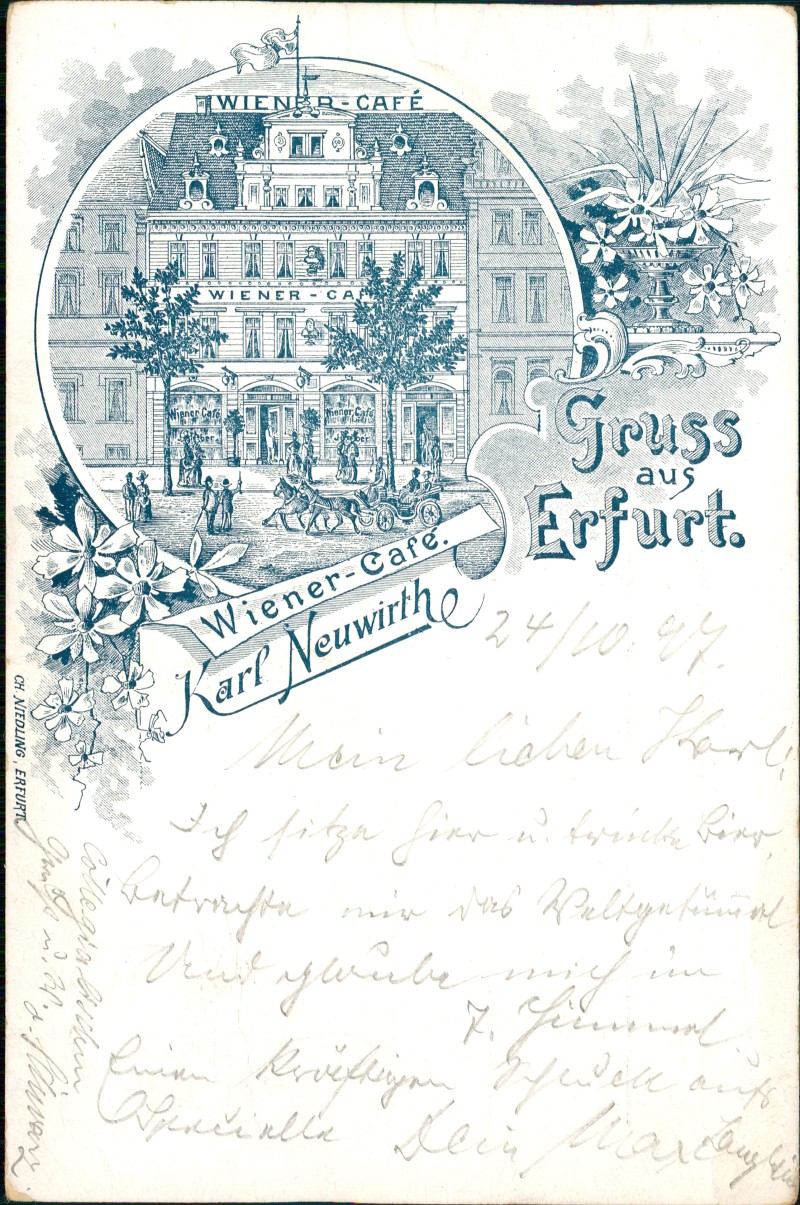 WIENER-CAFÉ
WIENER-CA
Wiener Café
Wiener Café
Gruss
aus
Erfurt.
Wiener-Café.
Karl Neuwirth
CH. NIEDLING, ERFURT.
24/10. 97.
Mein lieber Karl!
Ich sitze hier u. trinke Bier,
betrachte mir das Weltgetümmel
Und glaube mich im
7. Himmel.
Einen kräftigen Schluck aufs
Specielle Dein Max
Gruß u.